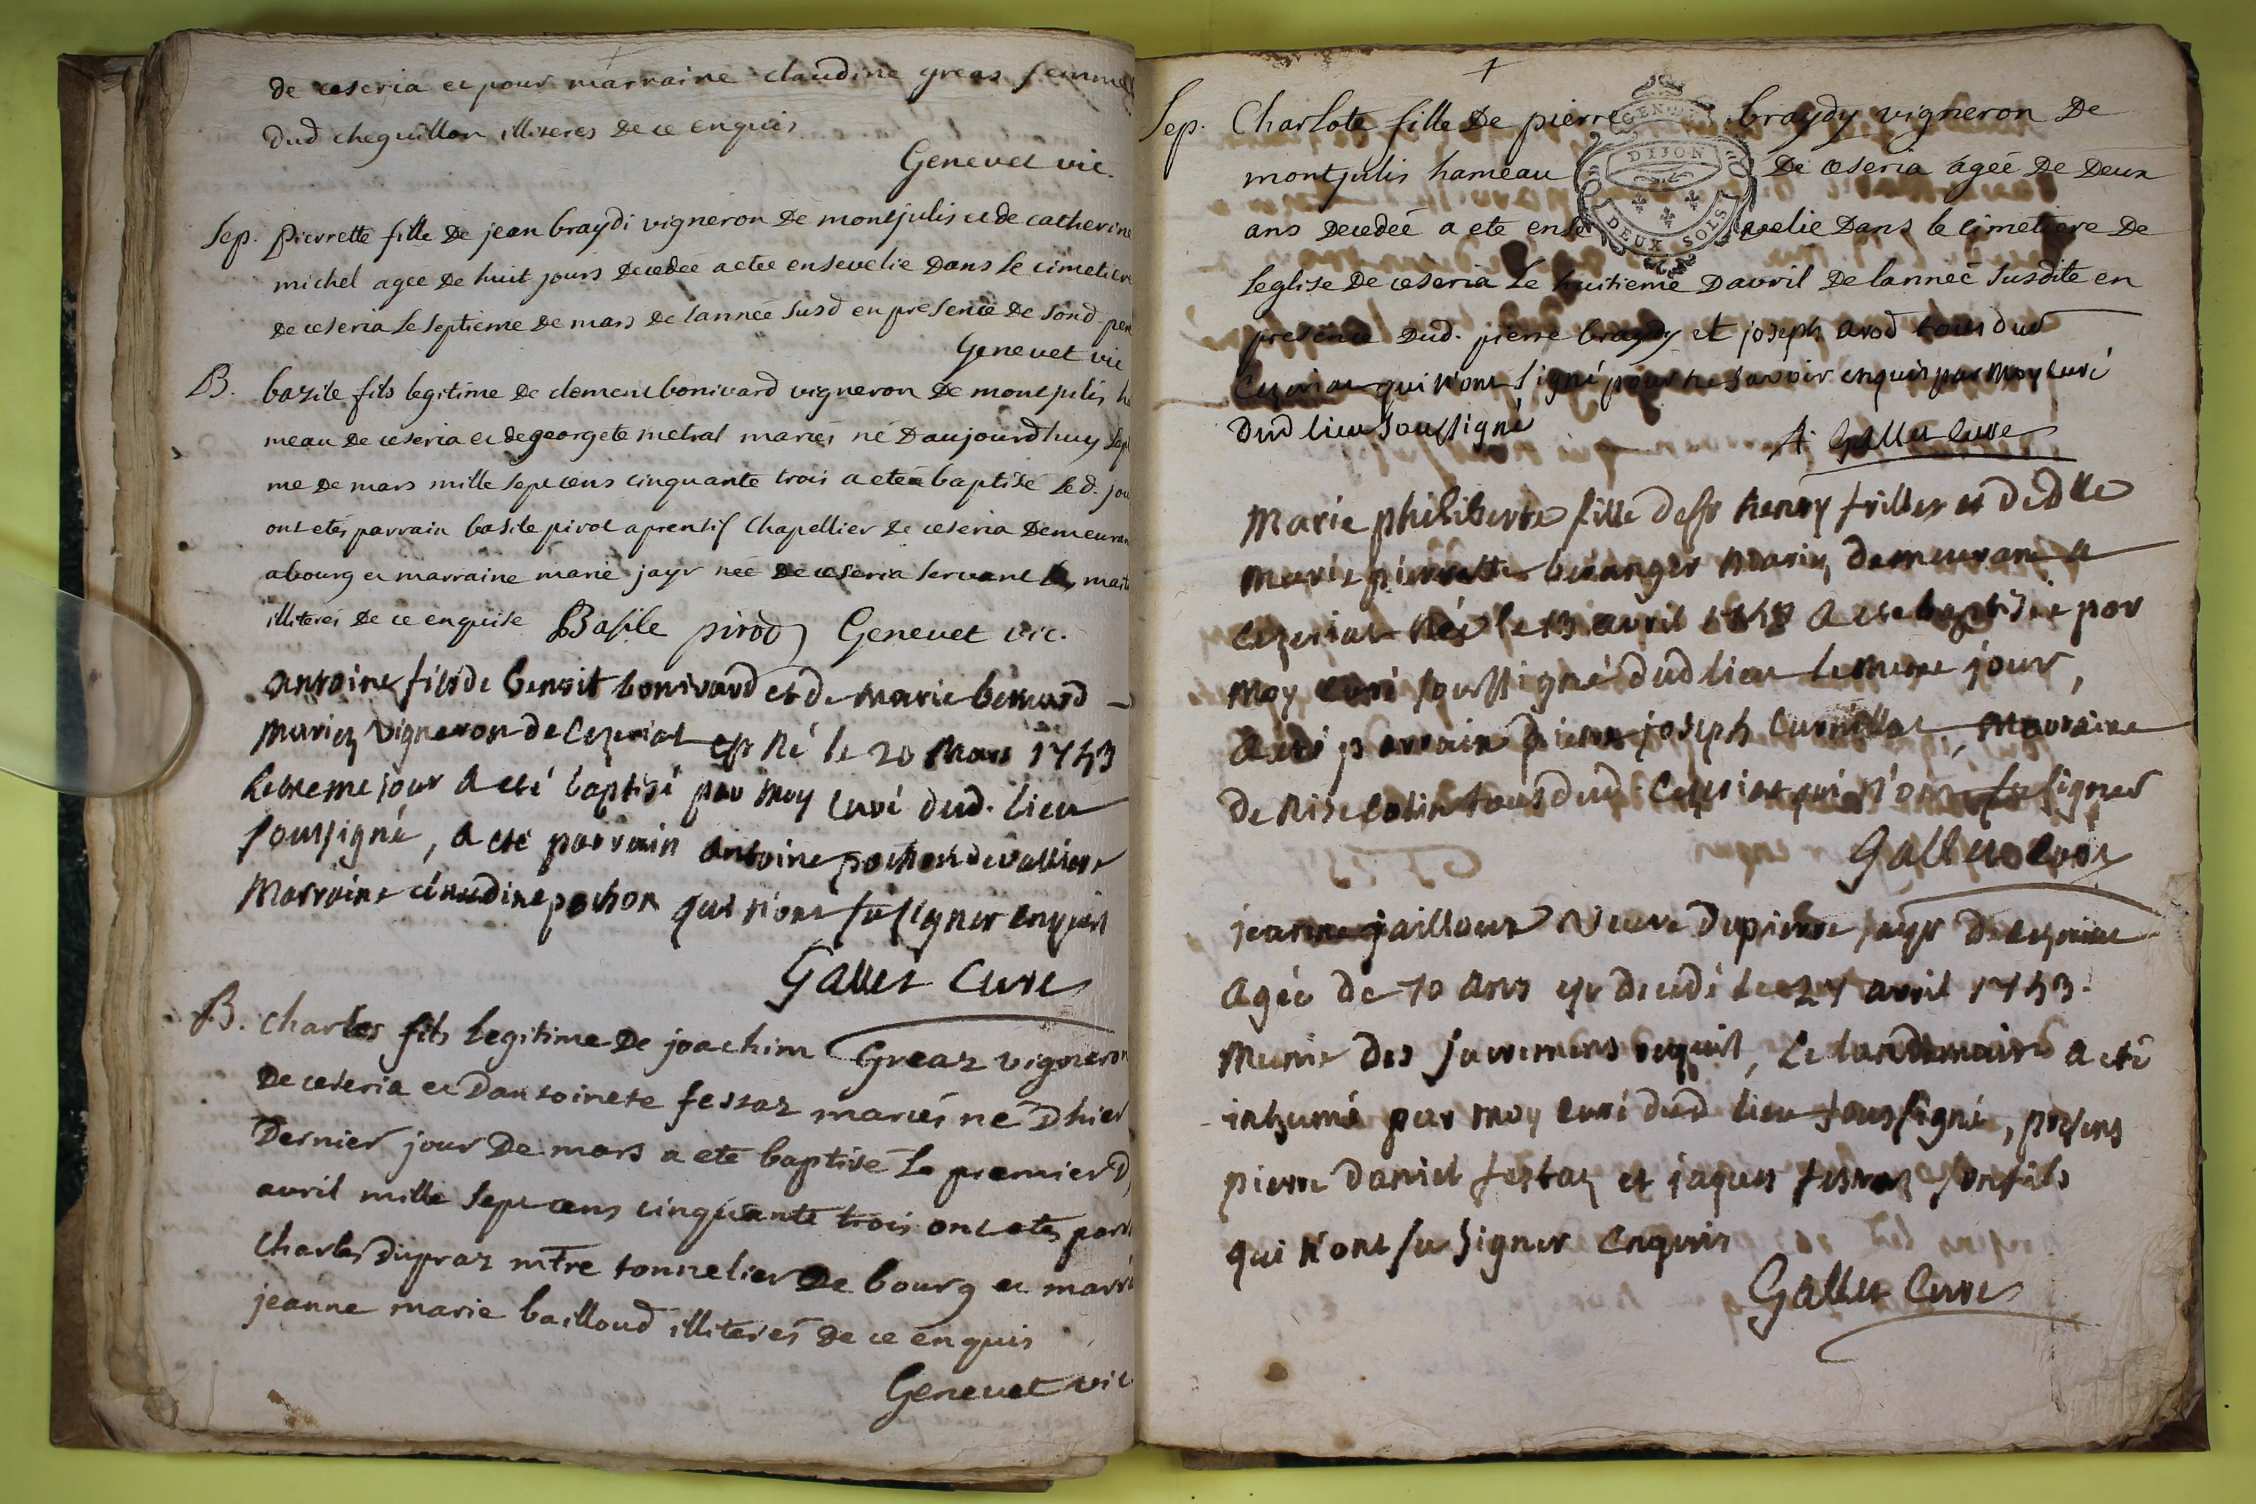 de ceseria et pour marraine claudine greas femme
dud cheguillon illiteres de ce enquis
Genevet vic.
Sep. pierrette fille de jean braydi vigneron de montjulis et de catherine
michel agee de huit jours decedeé a eteé ensevelie dans le cimetiere
de ceseria le septieme de mars de lanneé susd en presence de sond. pere
Genevet vic
B. bazile fils legitime de clement bonivard vigneron de montjulis ha
meau de ceseria et de georgete metral mariés né daujourdhuy sept
me de mars mille sept cens cinquante trois a eteé baptisé led. jou
ont etés parrain basile pirot aprentif chapellier de ceseria demeuran
abourg et marraine marie jayr neé de ceseria servant
illiterés de ce enquise Basile pirod Genevet vic.
antoine fils de benoit bonivard et de marie bernard
mariez vigneron de Cezeriat est né le 20 mars 1753
Le meme jour a eté baptisé par moy curé dud. lieu
soussigné, a eté parrain antoine pochon de valliere
Marraine claudine pochon qui n'ont su signer enquis
Gallet Curé
B. charles fils legitime de joachim Greaz vigneron
de ceseria et dantoinete festaz mariés né dhier
dernier jour de mars a eté baptisé le premier d
avril mille sept cens cinquante trois ont etés parr
charles dupraz mtre tonnelier de bourg et marr
jeanne marie bailloud illiterés de ce enquis
Genevet vic
Sep. Charlote fille de pierre braydy vigneron de
montjulis hameau de ceseria ageé de deux
ans decedeé a ete ensevelie dans le cimetiere de
leglise de ceseria le huitieme davril de lanneé susdite en
presence dud. pierre braydy et joseph avod tous dud
Cezeriat qui n'ont signé pour ne savoir enquis par moy curé
dud lieu soussigné
Gallet Curé
GEN
DIJON
DEUX SOLS
Marie philiberte fille de sr henry friller et de dlle
marie pierrette beranger mariez demeurant a
Cezeriat née le 13 avril 1753 a eté baptisée par
moy curé soussigné dud lieu le meme jour,
a eté parrain pierre joseph Curnillat, Marraine
denise colin tous dud Cezeriat qui n'ont su signer
Gallet Curé
jeanne jailloux veuve de pierre jayr de cezeriat
agée de 70 ans est decedé le 27 avril 1753.
Munie des sacremens requis, Le landemain a eté
inhumé par moy curé dud lieu soussigné, presens
pierre daniel festaz et jaques festaz son fils
qui n'ont su signer enquis
Gallet Curé